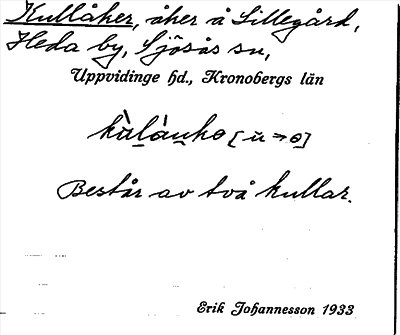 Kullåker, åker å Lillegård,
Heda by, Sjösås sn,
Uppvidinge hd., Kronobergs län
Består av två kullar.
Erik Johannesson 1933